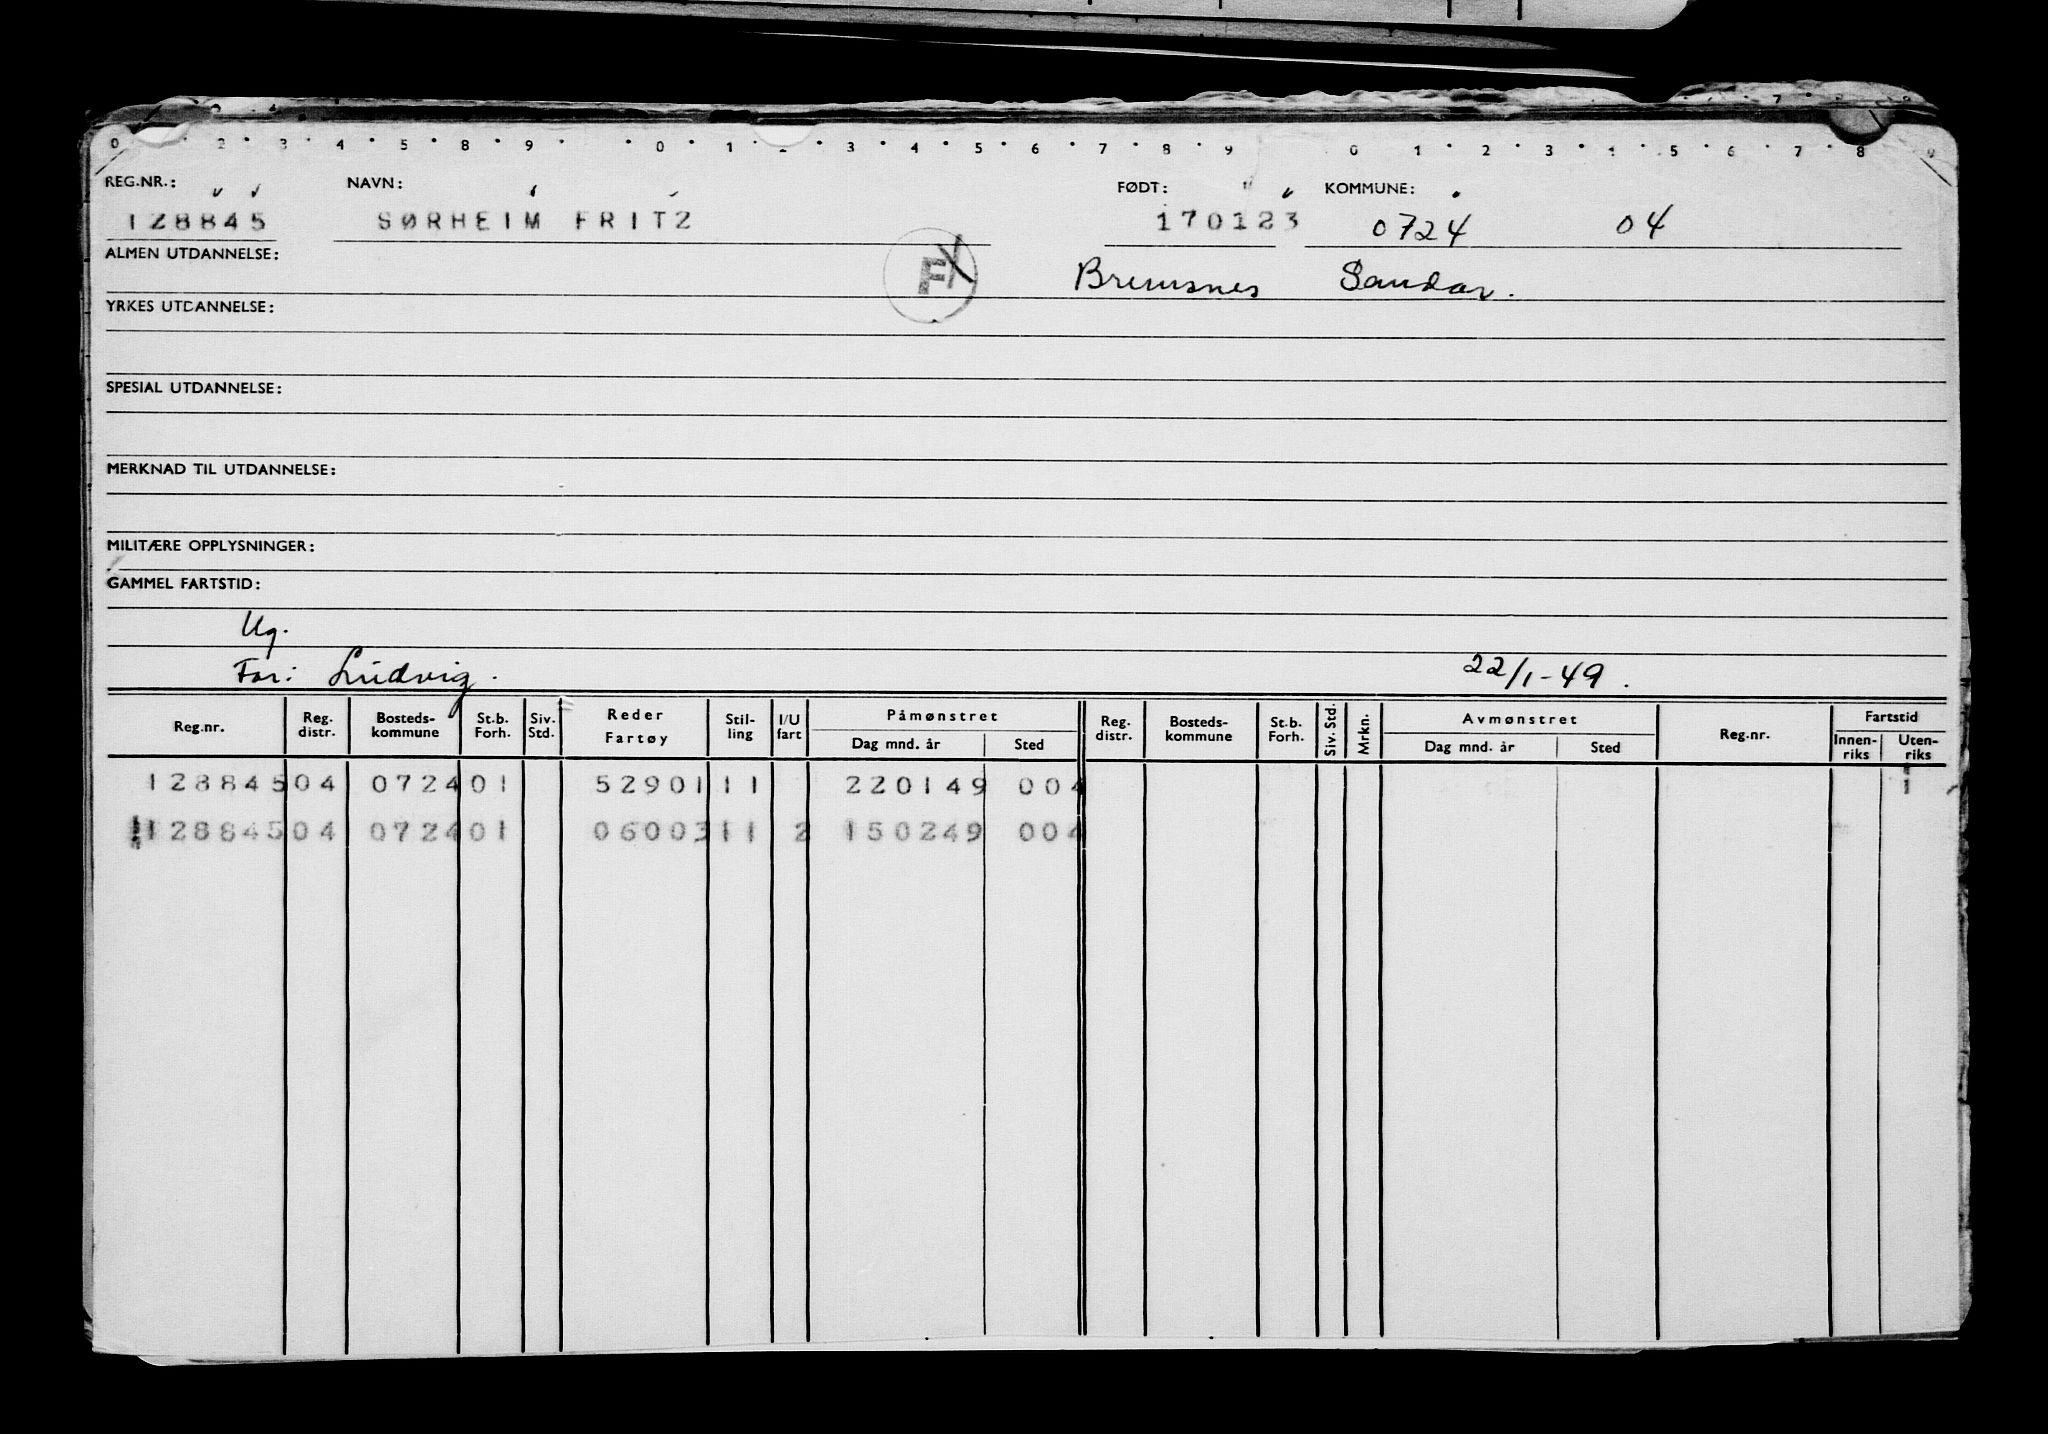 0 2 3 4 5 8 9 0 1 2 3 4 5 6 7 8 9 0 1 2 3 4 5 6 7 8 9
REG.NR.: NAVN: FØDT: KOMMUNE:
128845 SØRHEIM FRITZ 170123 0724 04
ALMEN UTDANNELSE: F Bremsnes Sandar.
YRKES UTDANNELSE:
SPESIAL UTDANNELSE:
MERKNAD TIL UTDANNELSE:
MILITÆRE OPPLYSNINGER:
GAMMEL FARTSTID:
Ug.
Far: Ludvig. 22/1-49.
Reg.nr. Reg. distr. Bosteds-kommune St.b. Forh. Siv. Std. Reder Fartøy Stil-ling I/U fart Påmønstret Dag mnd. år Sted Reg. distr. Bosteds-kommune St.b. Forh. Siv. Std. Mrkn. Avmønstret Dag mnd. år Sted Reg.nr. Fartstid Innen-riks Uten-riks
128845 04 0724 01 52901 11 220149 004 1
128845 04 0724 01 06003 11 2 150249 004